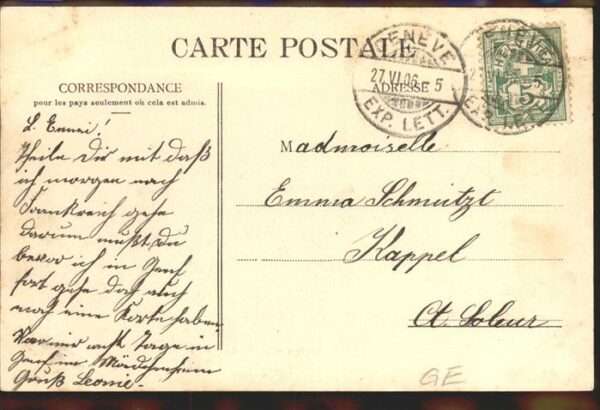 CARTE POSTALE
CORRESPONDANCE
pour les pays seulement où cela est admis.
ADRESSE
GENÈVE
27.VI.06.-5
EXP. LETT.
GENÈVE
EXP. LETT.
5
L. Emmi!
Theile Dir mit daß
ich morgen nach
Frankreich gehe
darum mußt Du
bevor ich in Genf
fort gehe daß auch
noch eine Karte haben
War nur acht Tage in
Genf im Mädchenheim
Gruß Leonie.
Madmoiselle
Emma Schmutzt
Kappel
Ct. Soleur
GE